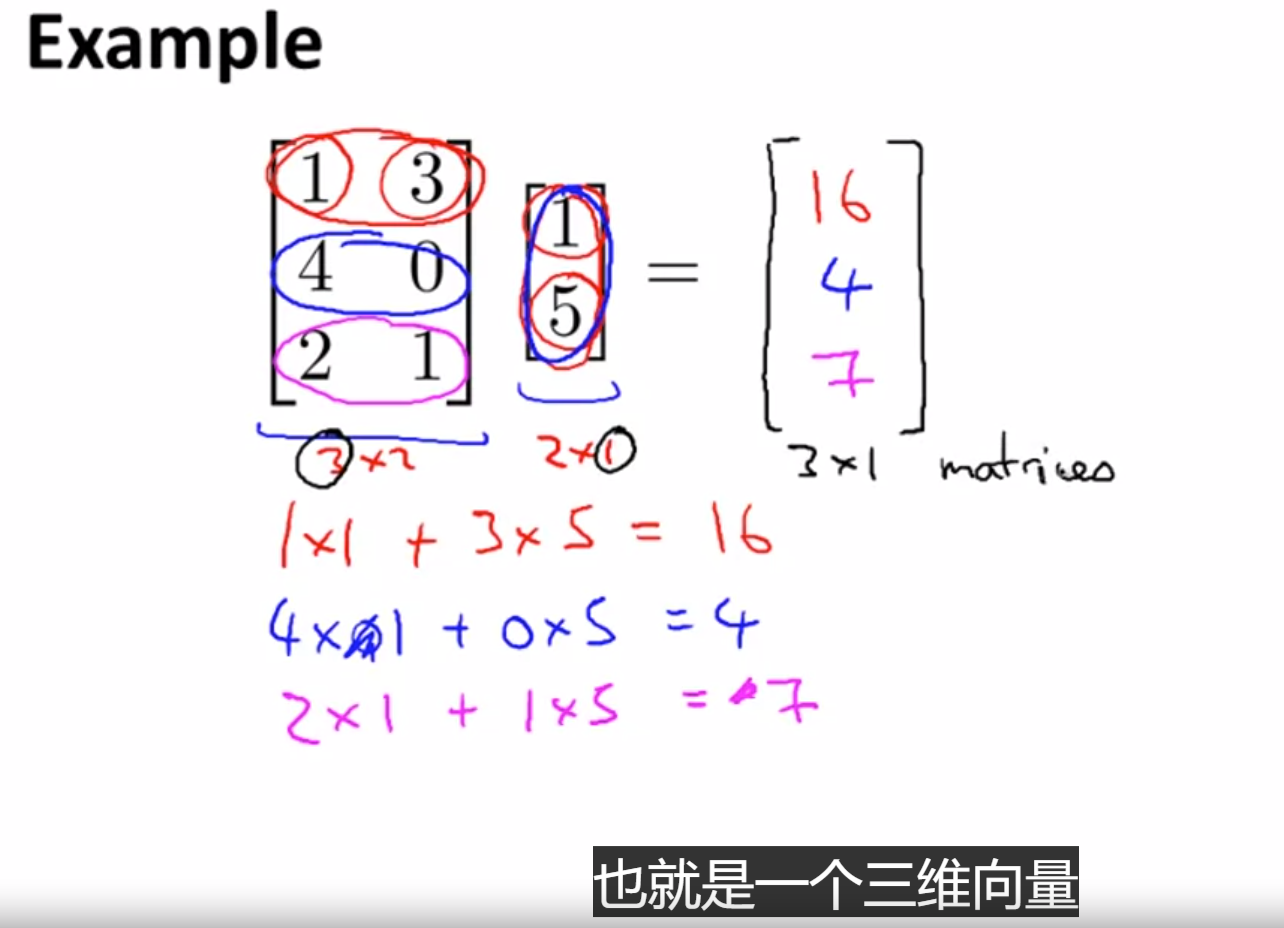 Example
1 3
4 0
2 1
1
5
=
16
4
7
3×2
2×1
3×1 matrices
1×1 + 3×5 = 16
4×1 + 0×5 = 4
2×1 + 1×5 = 7
也就是一个三维向量